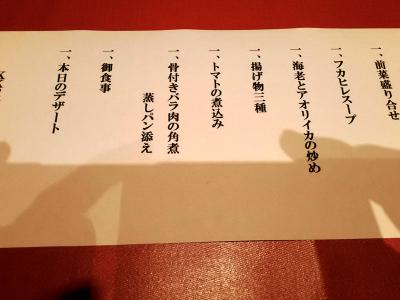 一、前菜盛り合せ
一、フカヒレスープ
一、海老とアオリイカの炒め
一、揚げ物三種
一、トマトの煮込み
一、骨付きバラ肉の角煮
蒸しパン添え
一、御食事
一、本日のデザート